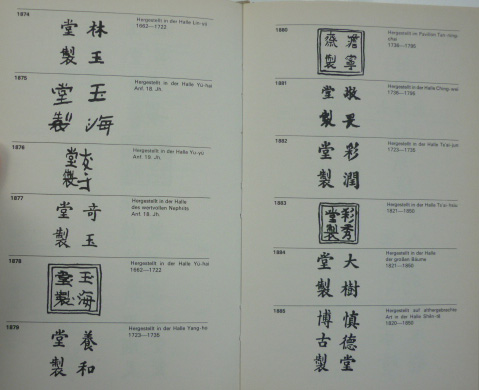 1874
Hergestellt in der Halle Lin-yü
1662—1722
林玉
堂製
1875
Hergestellt in der Halle Yü-hai
Ant. 18. Jh.
玉海
堂製
1876
Hergestellt in der Halle Yu-yü
Ant. 18. Jh.
友于
堂製
1877
Hergestellt in der Halle
des wertvollen Nephrits
Ant. 18. Jh.
奇玉
堂製
1878
Hergestellt in der Halle Yü-hai
1662—1722
玉海
堂製
1879
Hergestellt in der Halle Yang-ho
1723—1735
養和
堂製
1880
Hergestellt im Pavillon Tan-ning-
chai
1736—1795
澹寧
齋製
1881
Hergestellt in der Halle Ching-wei
1736—1795
敬畏
堂製
1882
Hergestellt in der Halle Ts'ai-jun
1723—1735
彩潤
堂製
1883
Hergestellt in der Halle
1821—1850
彩秀
堂製
1884
Hergestellt in der Halle
der großen Bäume
1821—1850
大樹
堂製
1885
Hergestellt auf althergebrachte
Art in der Halle Shên-tê
1820—1850
慎德堂
博古製